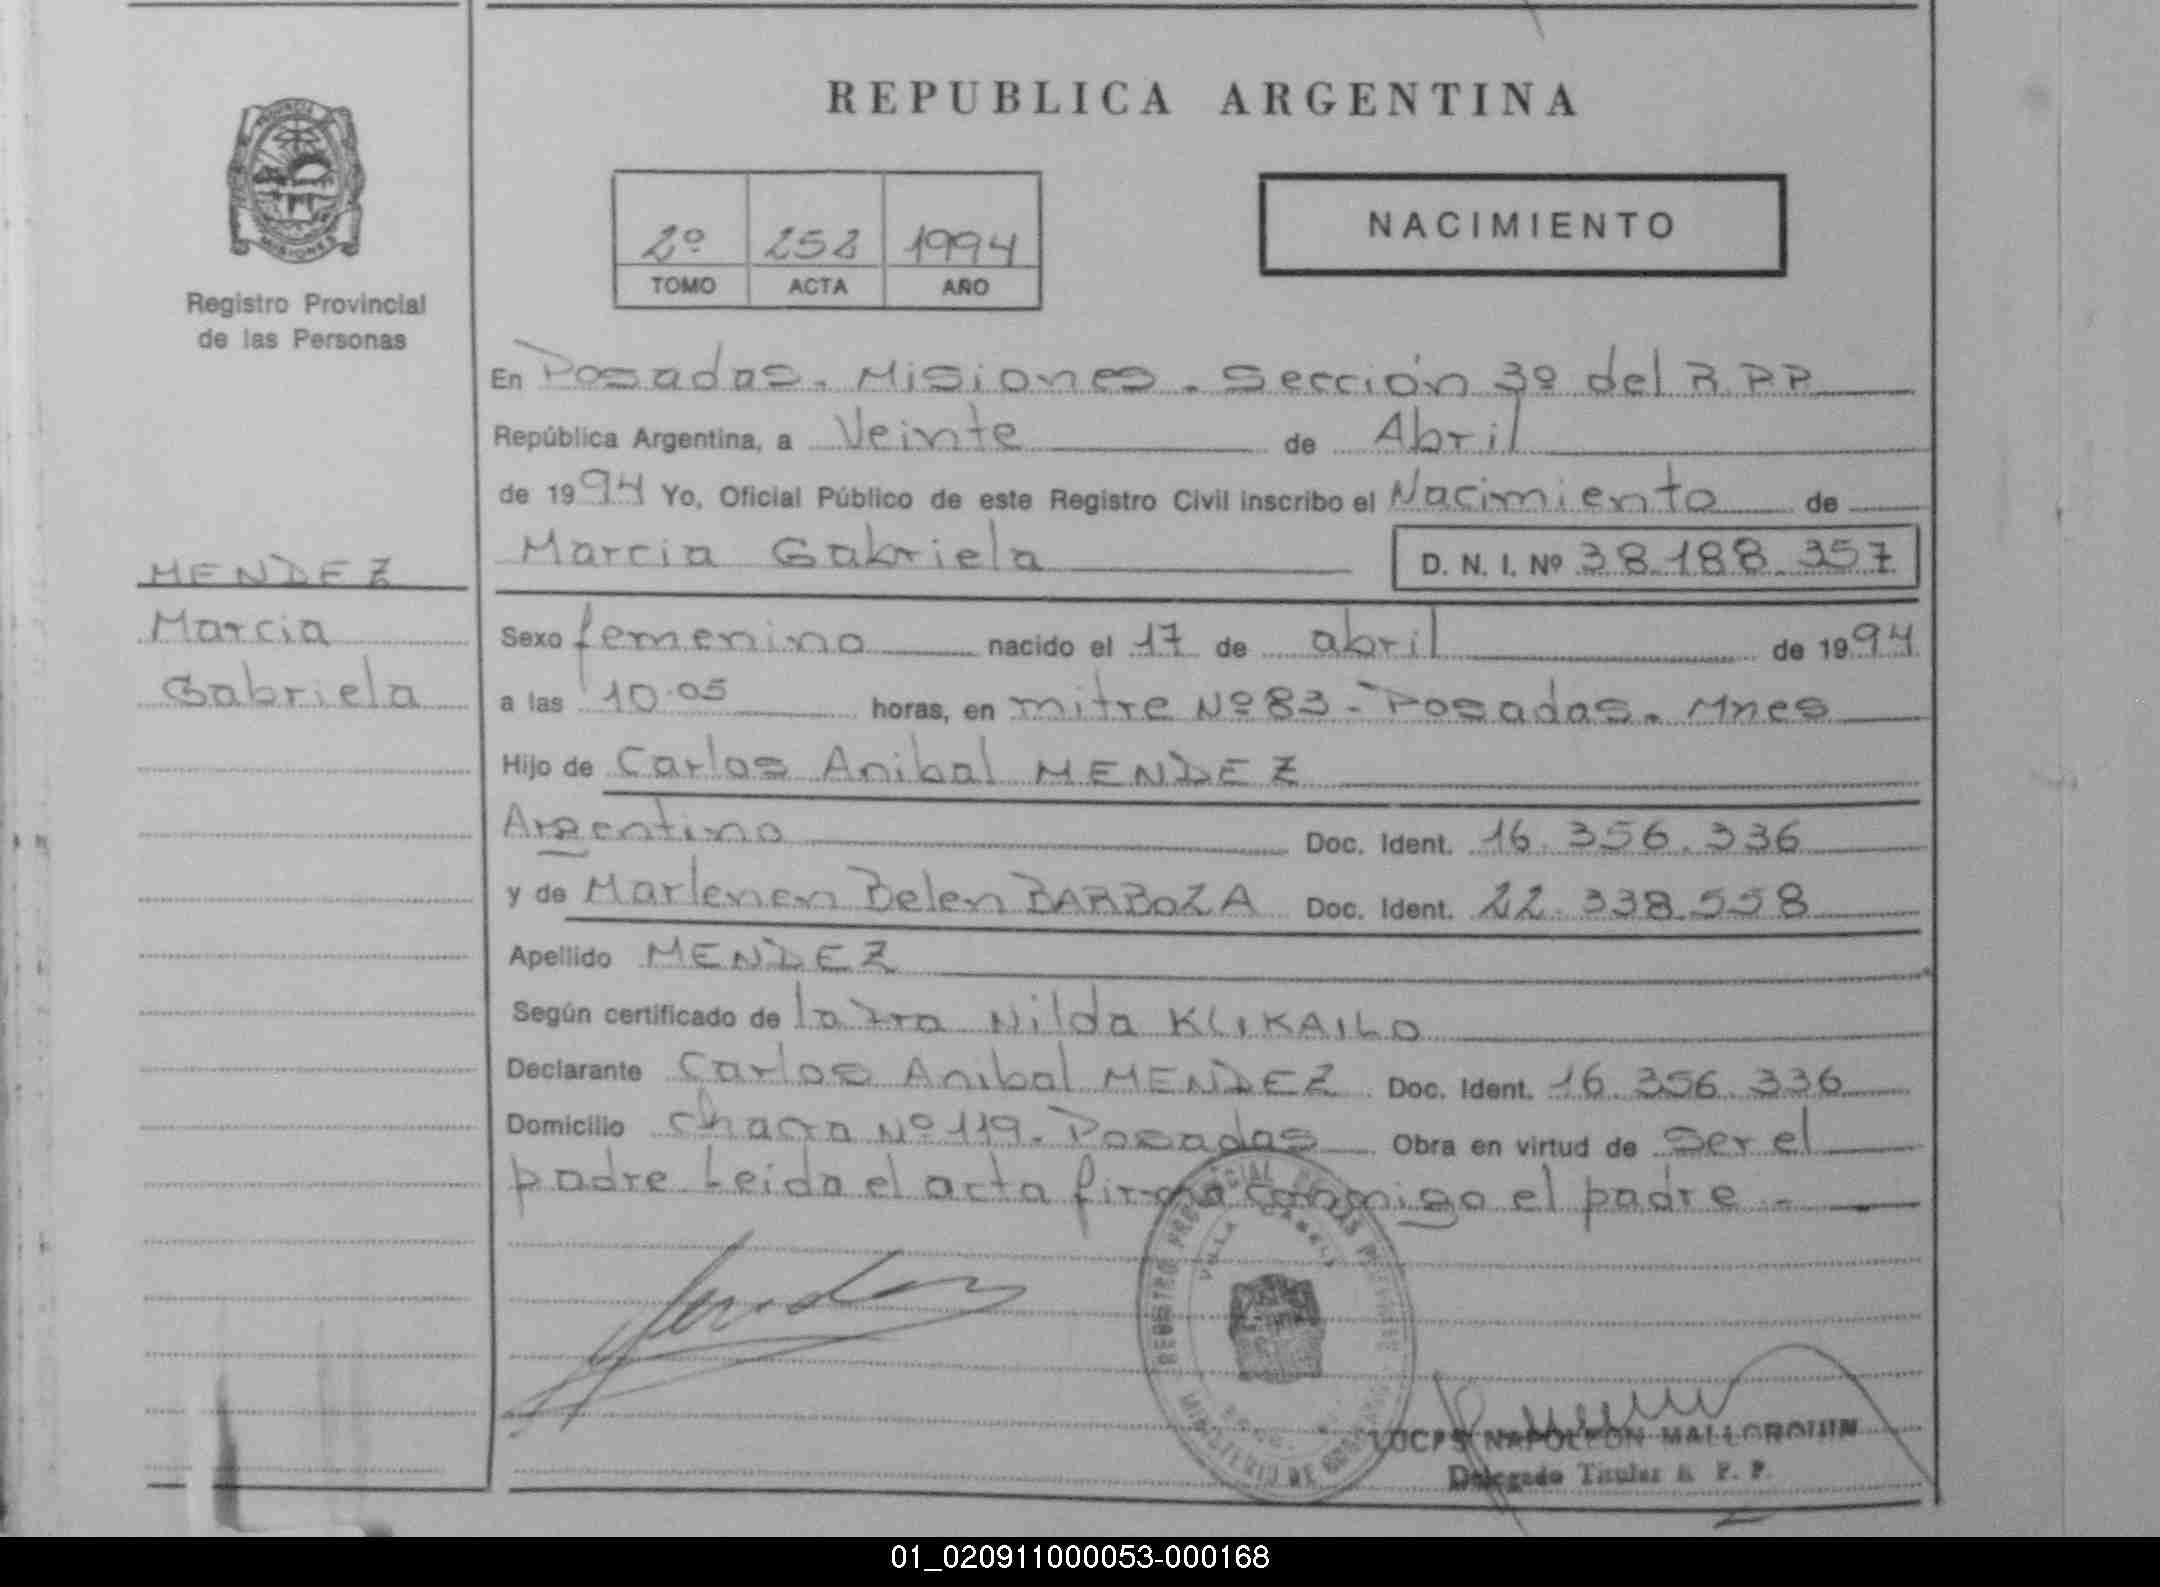 REPUBLICA ARGENTINA
MISIONES
Registro Provincial
de las Personas
2º 252 1994
TOMO ACTA AÑO
NACIMIENTO
En Posadas. Misiones. Sección 3º del R.P.P
República Argentina, a Veinte de Abril
de 1994 Yo, Oficial Público de este Registro Civil inscribo el Nacimiento de
Marcia Gabriela D. N. I. Nº 38.188.357
MENDEZ
Marcia
Gabriela
Sexo femenino nacido el 17 de abril de 1994
a las 10.05 horas, en mitre Nº 83 - Posadas. Mnes
Hijo de Carlos Anibal MENDEZ
Argentino Doc. Ident. 16.356.336
y de Marlenen Belen BARBOZA Doc. Ident. 22.338.558
Apellido MENDEZ
Según certificado de la Nilda KLIKAILO
Declarante Carlos Anibal MENDEZ Doc. Ident. 16.356.336
Domicilio chacra Nº 119. Posadas Obra en virtud de ser el
padre Leida el acta firma conmigo el padre -
REGISTRO PROVINCIAL DE LAS PERSONAS
VILLA CABELLO
NAPOLEON MALLORQUIN
Delegado Titular R. P. P.
01_020911000053-000168